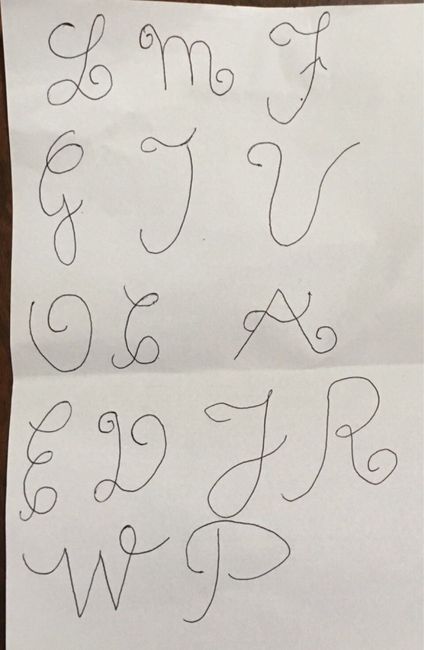 L M F
G T V
O C A
E D J R
W P